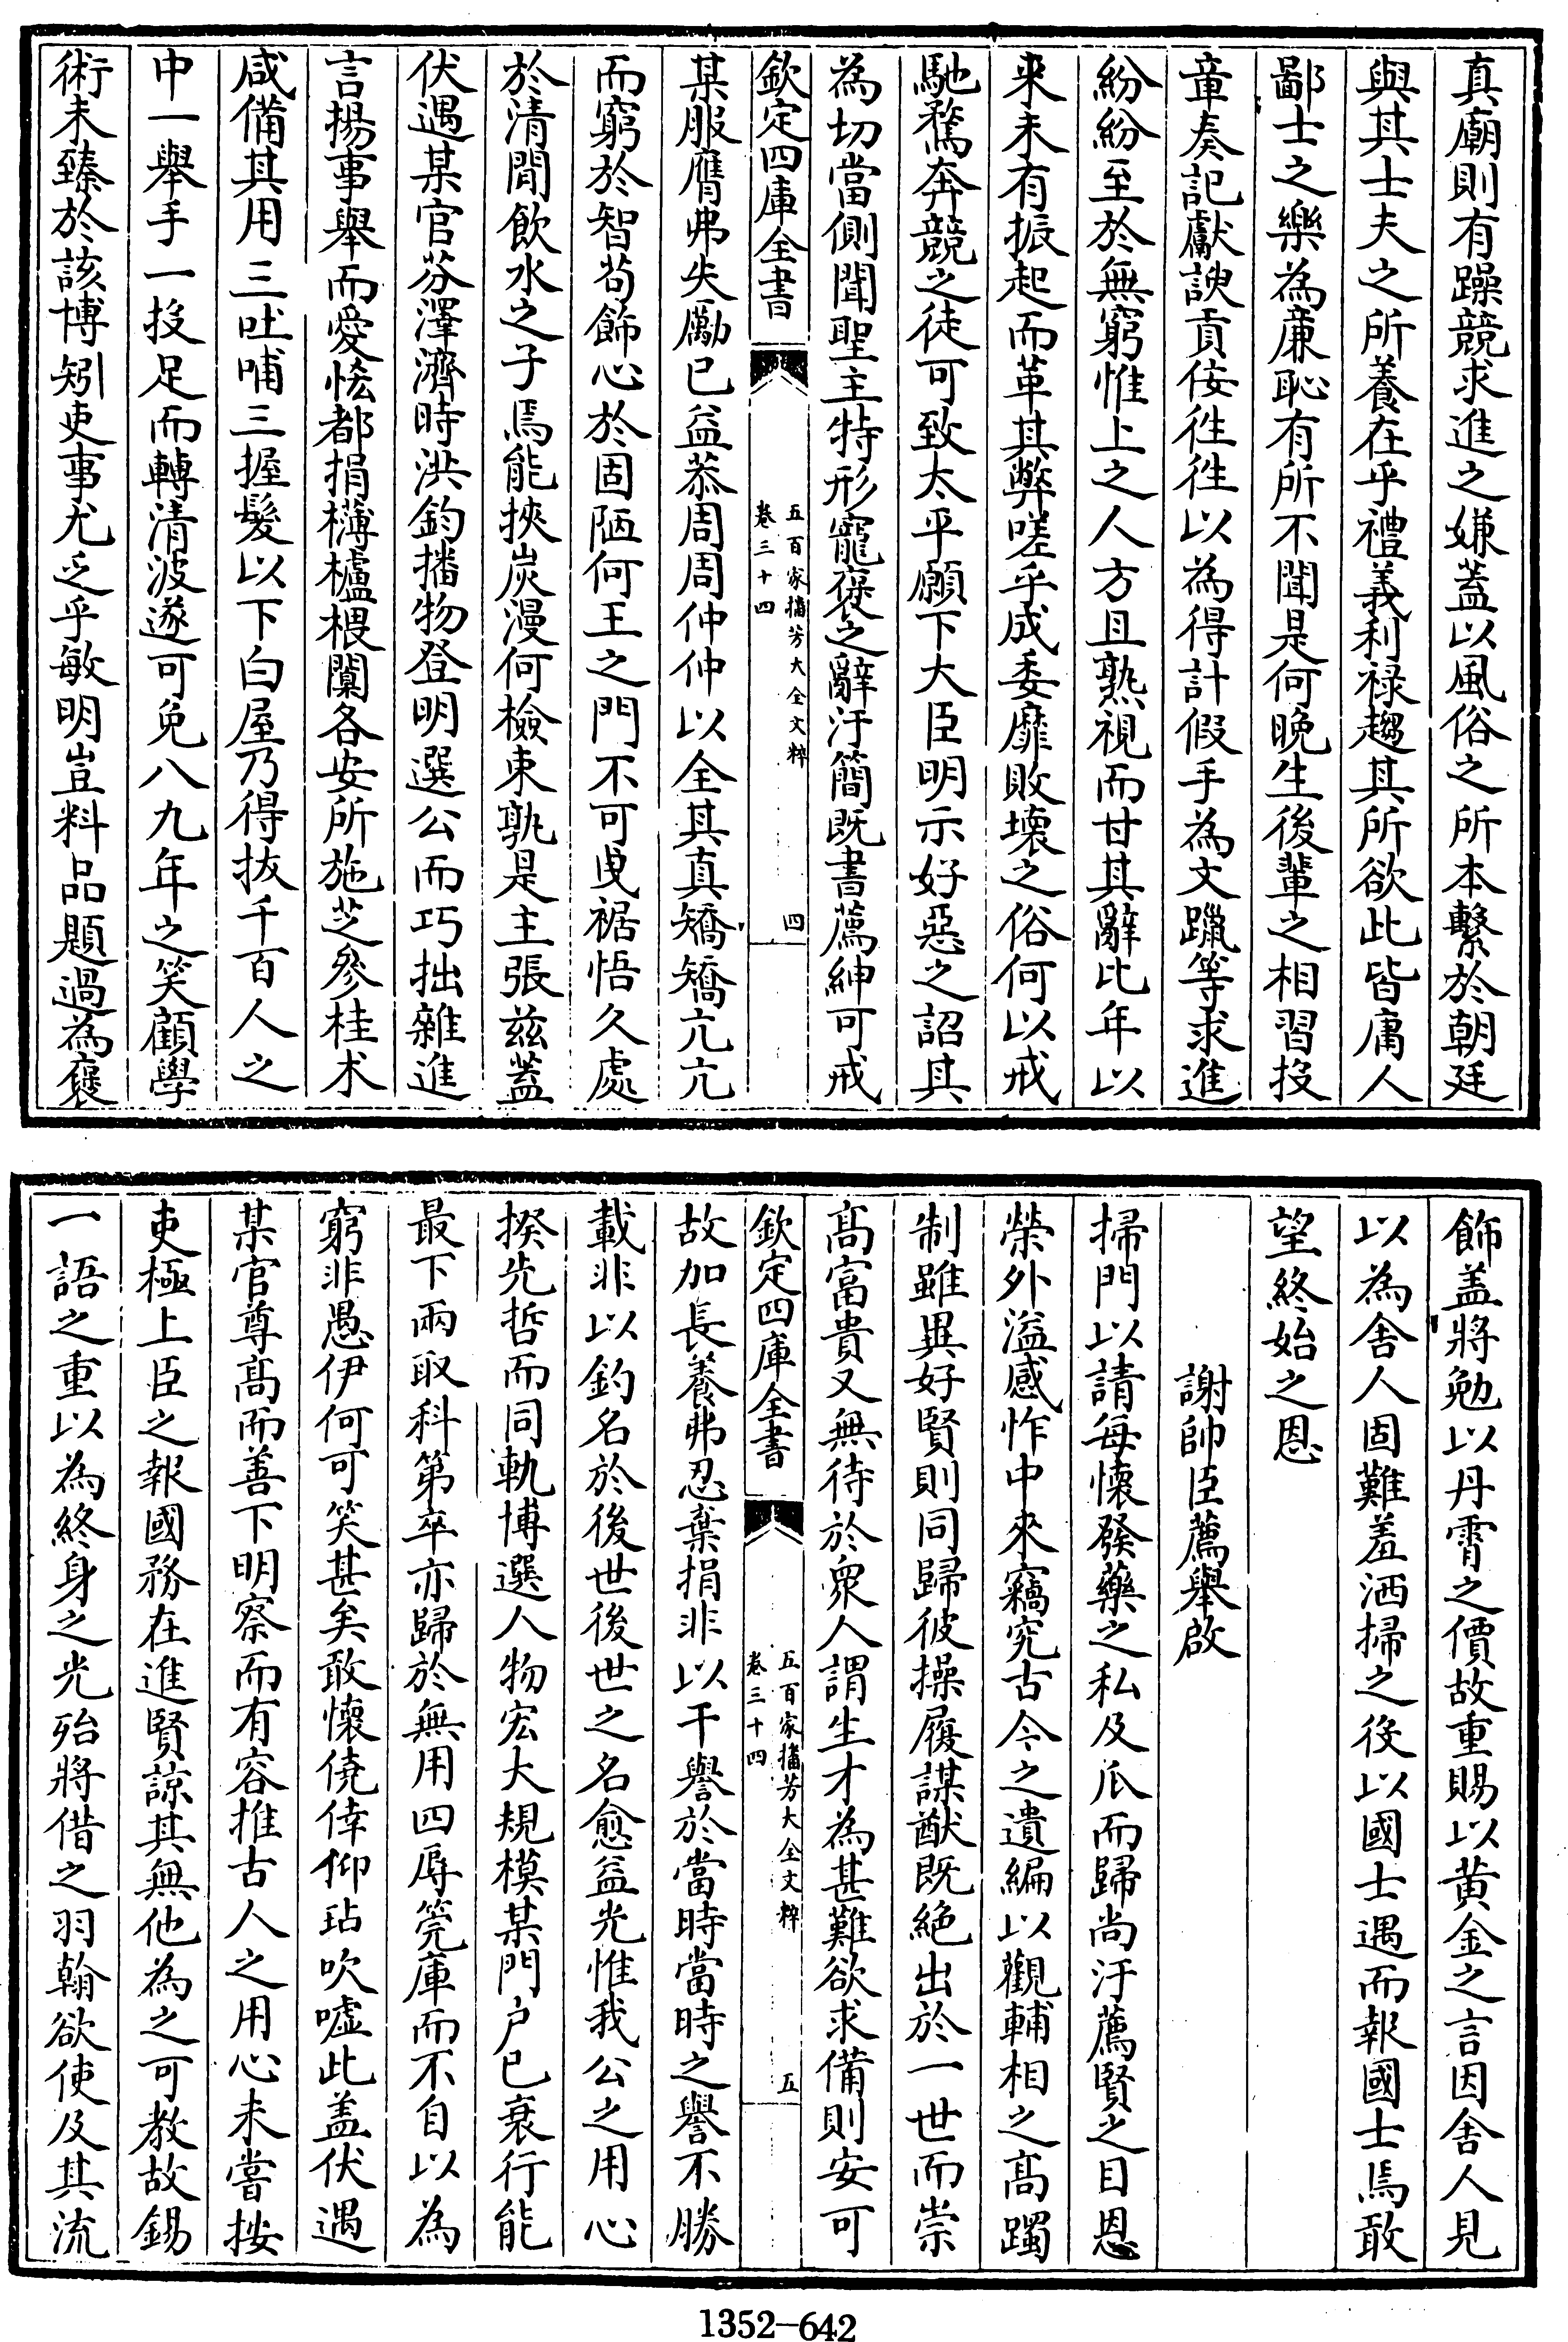 真廟則有躁競求進之嫌蓋以風俗之所本繫於朝廷
與其士夫之所養在乎禮義利祿趨其所欲此皆庸人
鄙士之樂為廉恥有所不聞是何晚生後輩之相習投
章奏記獻諛貢佞往往以為得計假手為文躐等求進
紛紛至於無窮惟上之人方且熟視而甘其辭比年以
来未有振起而革其弊嗟乎成委靡敗壞之俗何以戒
馳騖奔競之徒可致太平願下大臣明示好惡之詔其
為切當側聞聖主特形寵褒之辭汙簡既書薦紳可戒
欽定四庫全書
五百家播芳大全文粹
卷三十四
四
某服膺弗失勵已益恭周周仲仲以全其真矯矯亢亢
而窮於智茍飾心於固陋何王之門不可曳裾悟久處
於清閒飲水之子焉能挾炭漫何檢束孰是主張兹蓋
伏遇某官芬澤濟時洪鈞播物登明選公而巧拙雜進
言揚事舉而愛恡都捐欂櫨椳闑各安所施芝參桂术
咸備其用三吐哺三握髮以下白屋乃得拔千百人之
中一舉手一投足而轉清波遂可免八九年之笑顧學
術未臻於該博矧吏事尤乏乎敏明豈料品題過為褒
飾盖將勉以丹霄之價故重賜以黄金之言因舍人見
以為舍人固難羞洒掃之役以國士遇而報國士焉敢
望終始之恩
謝帥臣薦舉啟
掃門以請每懷發藥之私及爪而歸尚汙薦賢之目恩
榮外溢感怍中來竊究古今之遺編以觀輔相之髙躅
制雖異好賢則同歸彼操履謀猷既絶出於一世而崇
髙富貴又無待於衆人謂生才為甚難欲求備則安可
欽定四庫全書
五百家播芳大全文粹
卷三十四
五
故加長養弗忍棄捐非以干譽於當時當時之譽不勝
載非以釣名於後世後世之名愈益光惟我公之用心
揆先哲而同軌博選人物宏大規模某門户已衰行能
最下兩取科第卒亦歸於無用四辱筦庫而不自以為
窮非愚伊何可笑甚矣敢懷僥倖仰玷吹噓此盖伏遇
某官尊髙而善下明察而有容推古人之用心未嘗按
吏極上臣之報國務在進賢諒其無他為之可教故錫
一語之重以為終身之光殆將借之羽翰欲使及其流
1352—642